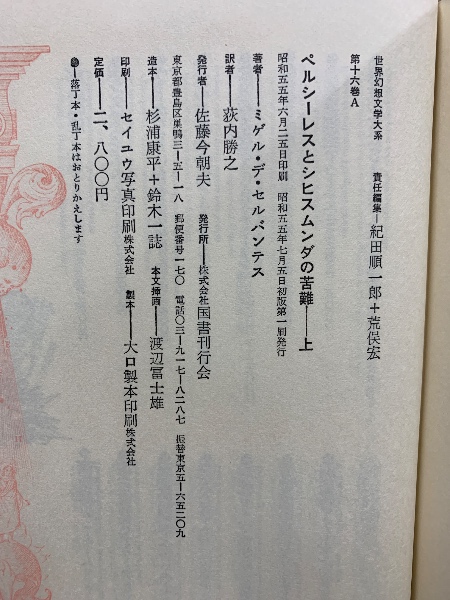 世界幻想文学大系　責任編集―紀田順一郎＋荒俣宏
第十六巻A
ペルシーレスとシヒスムンダの苦難――上
昭和五五年六月二五日印刷　昭和五五年七月五日初版第一刷発行
著者――ミゲル・デ・セルバンテス
訳者――荻内勝之
発行者――佐藤今朝夫　発行所――株式会社国書刊行会
東京都豊島区巣鴨三―五―一八　郵便番号一七〇　電話〇三―九一七―八二八七　振替東京五―六五二〇九
造本――杉浦康平＋鈴木一誌　本文挿画――渡辺冨士雄
印刷――セイユウ写真印刷株式会社　製本――大口製本印刷株式会社
定価――二、八〇〇円
落丁本・乱丁本はおとりかえします